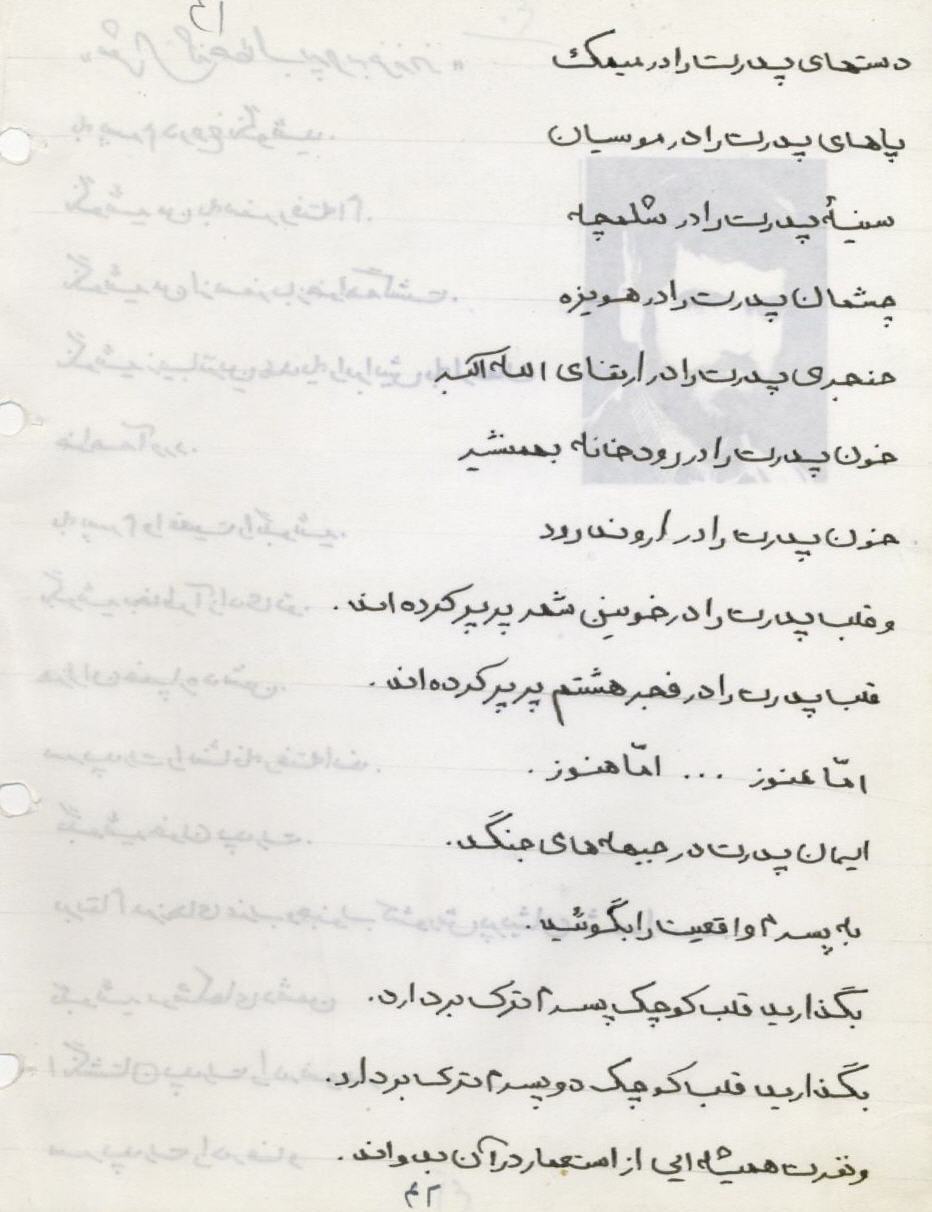 دستهای پدرت را در میمک
پاهای پدرت را در موسیان
سینهٔ پدرت را در شلمچه
چشمان پدرت را در هویزه
حنجری پدرت را در ارتفای الله اکبر
خون پدرت را در رودخانه بهمنشیر
خون پدرت را در اروند رود
و قلب پدرت را در خونین شهر پرپر کرده‌اند.
قلب پدرت را در فجر هشتم پرپر کرده‌اند.
امّا هنوز ... امّا هنوز.
ایمان پدرت در جبهه‌های جنگد.
به پسرم واقعیت را بگوئید.
بگذارید قلب کوچک پسرم ترک بردارد.
بگذارید قلب کوچک دو پسرم ترک بردارد.
و نفرت همیشه‌ایی از استعمار در آن بدواند.
۴۲